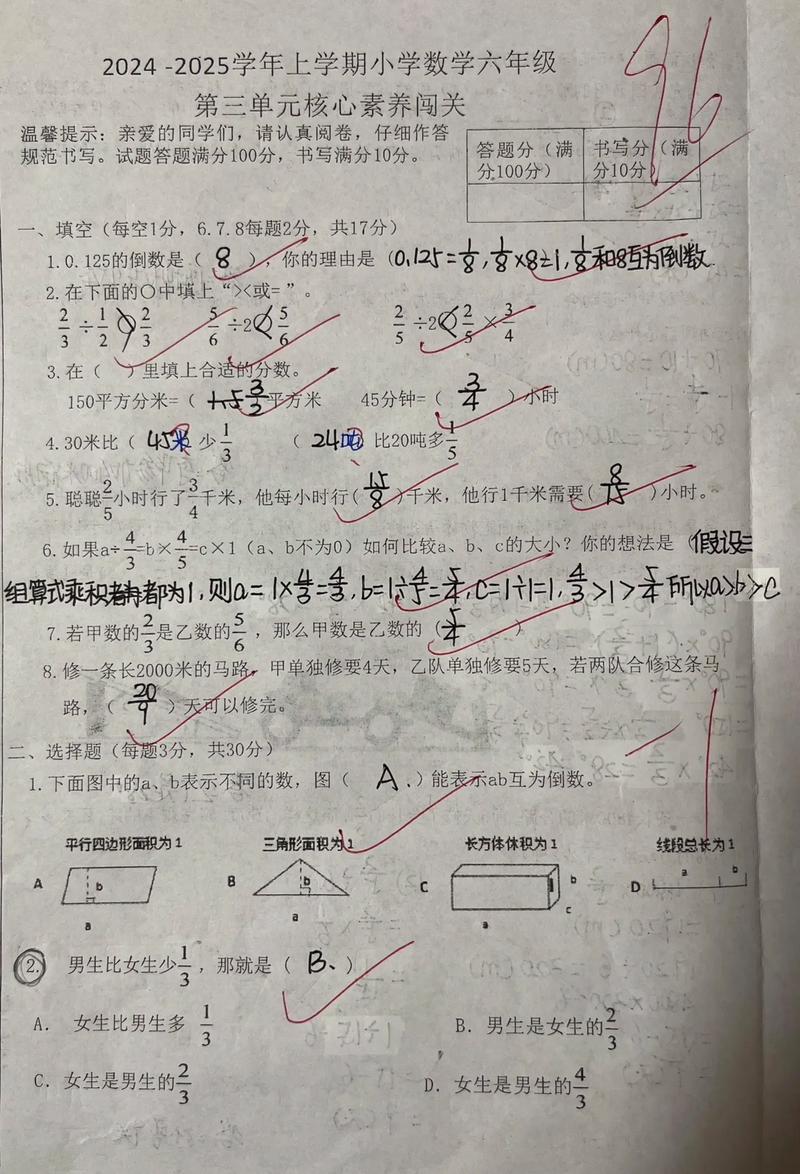 2024 -2025学年上学期小学数学六年级
96
第三单元核心素养闯关
温馨提示：亲爱的同学们，请认真阅卷，仔细作答
规范书写。试题答题满分100分，书写满分10分。
答题分（满分100分） 书写分（满分10分）
一、填空（每空1分，6.7.8每题2分，共17分）
1.0.125的倒数是（ 8 ），你的理由是（0.125=1/8，1/8×8=1，1/8和8互为倒数
2.在下面的〇中填上“><或= ”。
2/3÷1/2>2/3 5/6÷2<5/6 2/5÷2<2/5×3/4
3.在（ ）里填上合适的分数。
150平方分米=（ 3/2 平方米 45分钟=（ 3/4 ）小时
4.30米比（ 45米 少1/3 （ 24吨 比20吨多1/5
5.聪聪2/5小时行了3/4千米，他每小时行(15/8)千米，他行1千米需要(8/15)小时。
6.如果a÷4/3=b×4/5=c×1（a、b不为0）如何比较a、b、c的大小？你的想法是（假设三
组算式乘积都为1，则a=1×4/3=4/3，b=1÷4/5=5/4，c=1÷1=1，4/3>1>5/4所以a>b>c
7.若甲数的2/3是乙数的5/6，那么甲数是乙数的（5/4）
8.修一条长2000米的马路，甲单独修要4天，乙队单独修要5天，若两队合修这条马
路，（ 20/9 ）天可以修完。
二、选择题（每题3分，共30分）
1.下面图中的a、b表示不同的数，图（ A ）能表示ab互为倒数。
平行四边形面积为1 三角形面积为1 长方体体积为1 线段总长为1
A b a B b a C b c a D a b
2. 男生比女生少1/3，那就是（ B、）
A. 女生比男生多 1/3 B. 男生是女生的2/3
C. 女生是男生的2/3 D. 女生是男生的4/3